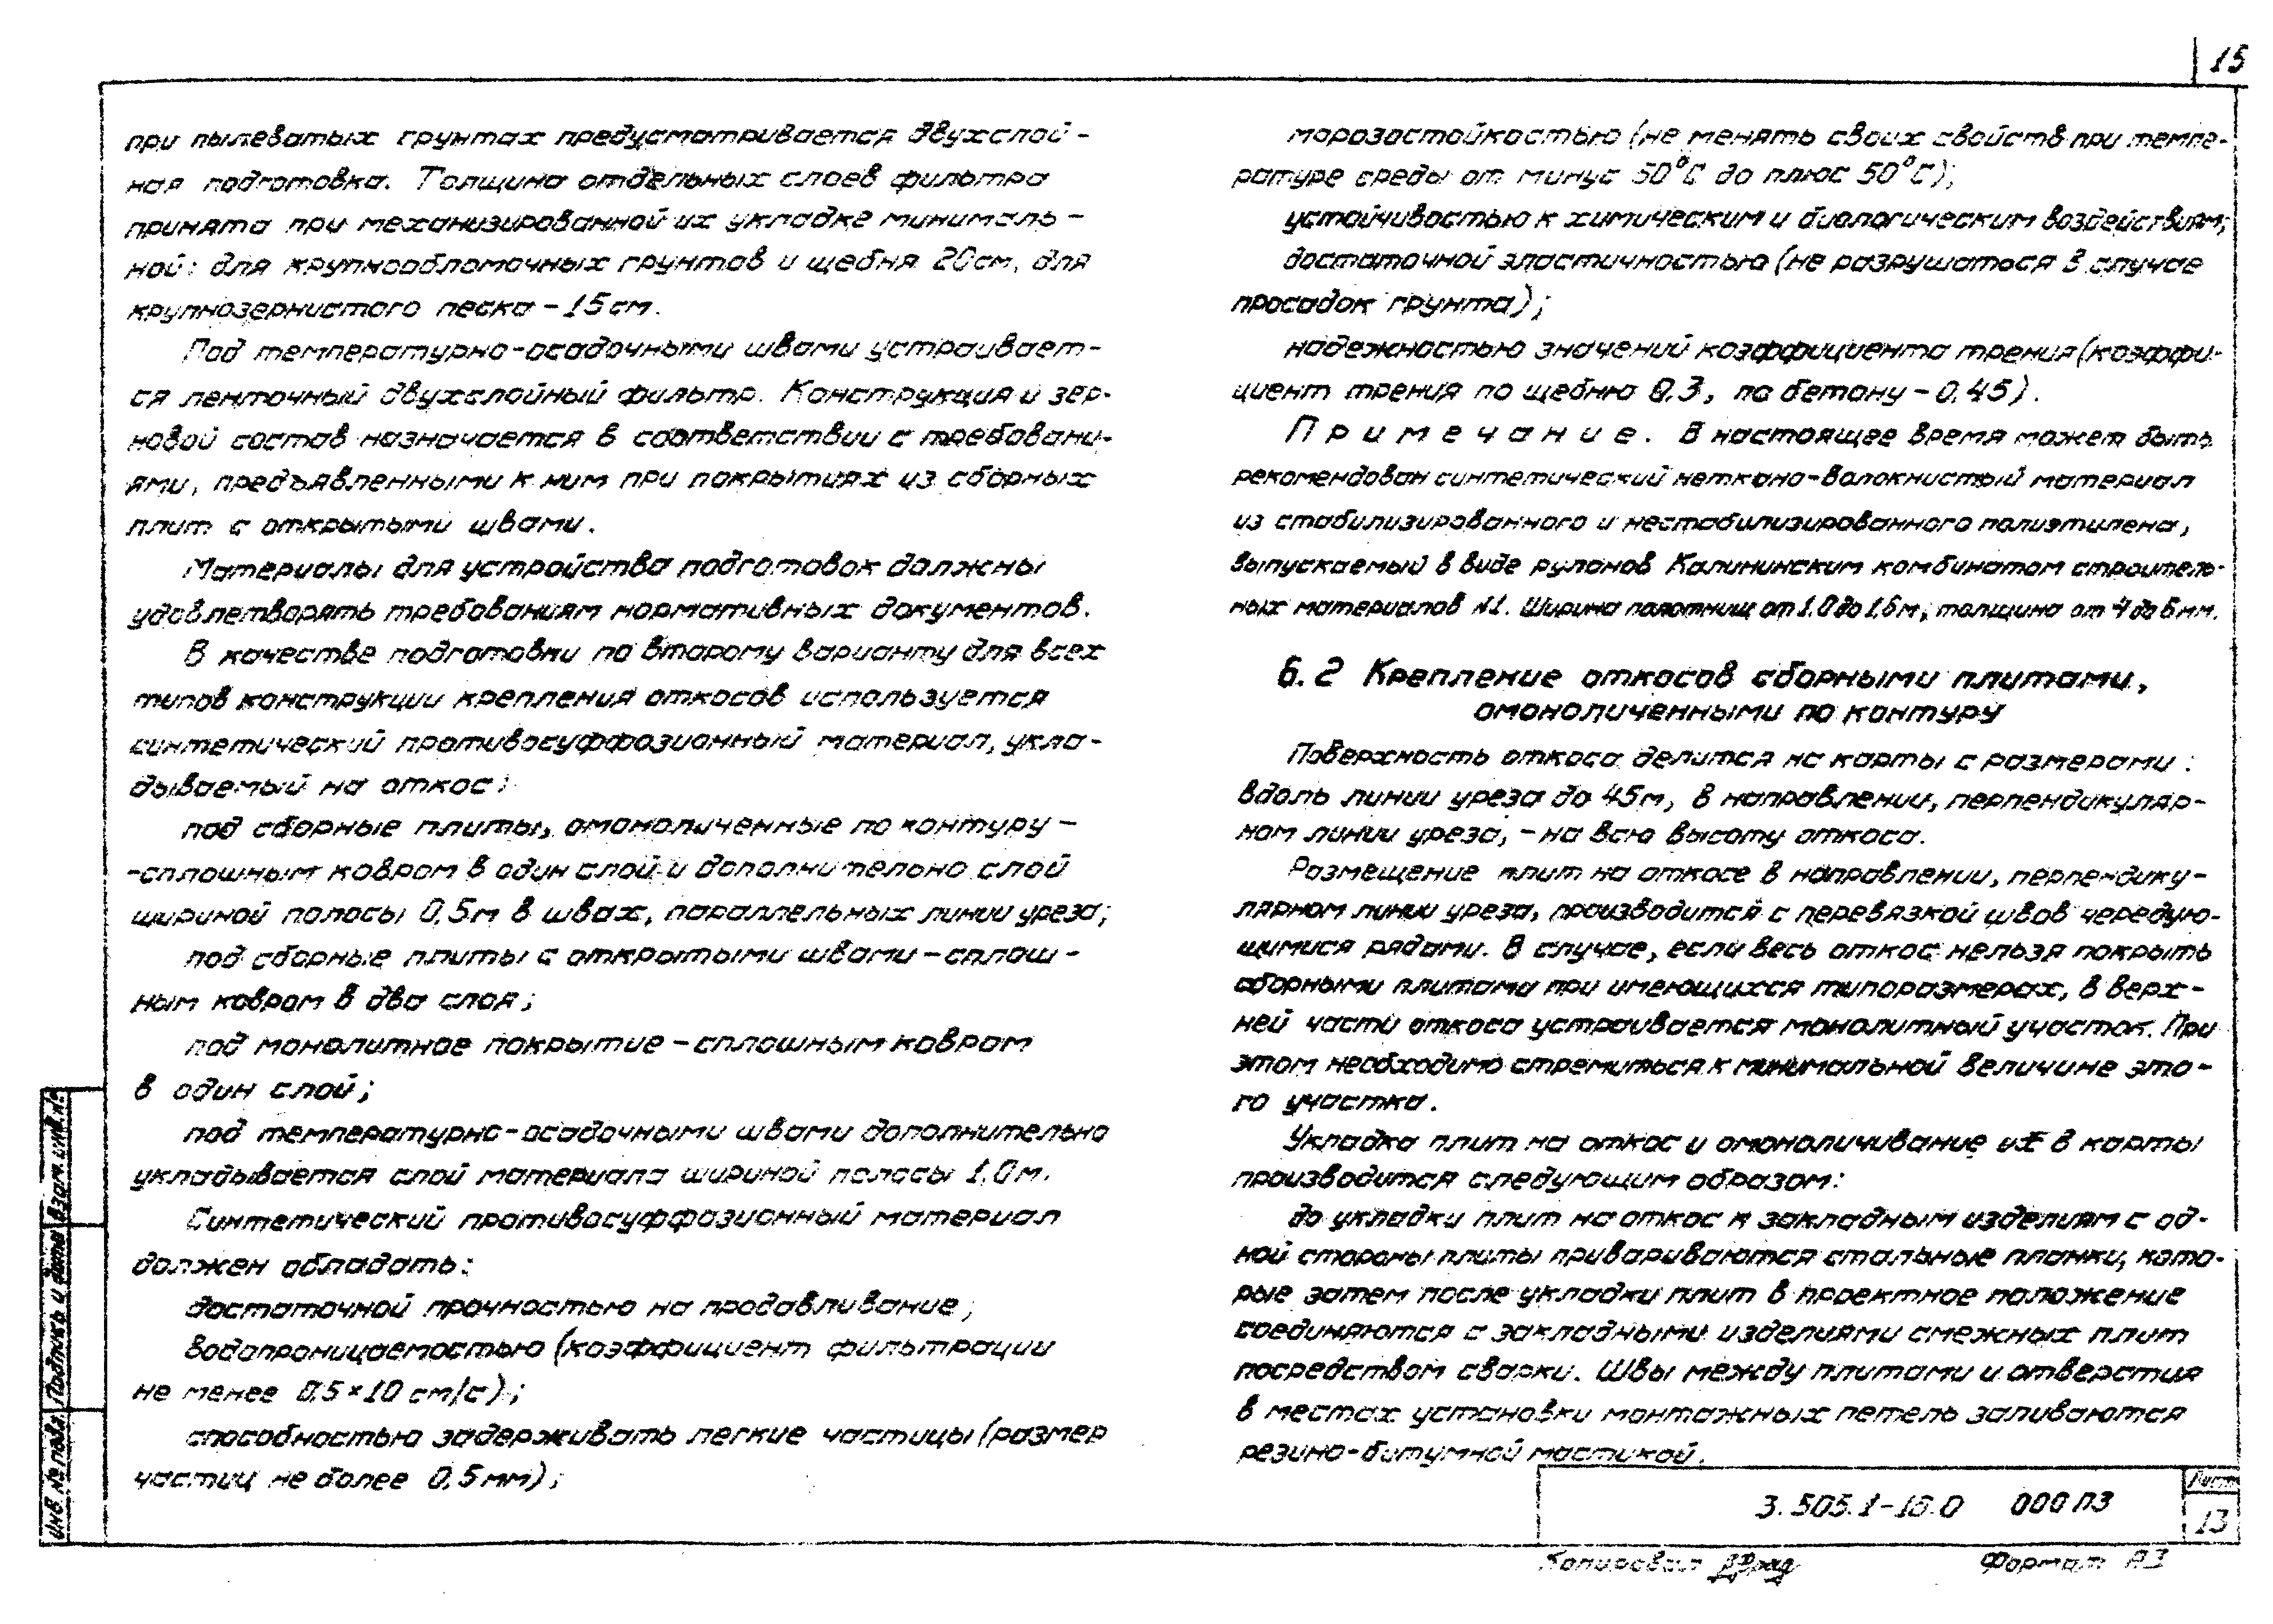 15
при пылеватых грунтах предусматривается двухслой-
ная подготовка. Толщина отдельных слоев фильтра
принята при механизированной их укладке минималь-
ной: для крупнообломочных грунтов и щебня 20см, для
крупнозернистого песка - 15 см.
Под температурно-осадочными швами устраивает-
ся ленточный двухслойный фильтр. Конструкция и зер-
новой состав назначается в соответствии с требовани-
ями, предъявленными к ним при покрытиях из сборных
плит с открытыми швами.
Материалы для устройства подготовок должны
удовлетворять требованиям нормативных документов.
В качестве подготовки по второму варианту для всех
типов конструкции крепления откосов используется
синтетический противосуффозионный материал, укла-
дываемый на откос:
под сборные плиты, омоноличенные по контуру -
-сплошным ковром в один слой и дополнительно слой
шириной полосы 0,5м в швах, параллельных линии уреза;
под сборные плиты с открытыми швами - сплош-
ным ковром в два слоя;
под монолитное покрытие - сплошным ковром
в один слой;
под температурно-осадочными швами дополнительно
укладывается слой материала шириной полосы 1,0м.
Синтетический противосуффозионный материал
должен обладать:
достаточной прочностью на продавливание;
водопроницаемостью (коэффициент фильтрации
не менее 0,5×10 см/с);
способностью задерживать легкие частицы (размер
частиц не более 0,5мм);
морозостойкостью (не менять своих свойств при темпе-
ратуре среды от минус 50°С до плюс 50°С);
устойчивостью к химическим и биологическим воздействиям;
достаточной эластичностью (не разрушаться в случае
просадок грунта);
надежностью значений коэффициента трения (коэффи-
циент трения по щебню 0,3, по бетону - 0,45).
Примечание. В настоящее время может быть
рекомендован синтетический неткано-волокнистый материал
из стабилизированного и нестабилизированного полиэтилена,
выпускаемый в виде рулонов Калининским комбинатом строитель-
ных материалов №1. Ширина полотнищ от 1,0 до 1,6м, толщина от 4 до 6мм.
6.2 Крепление откосов сборными плитами,
омоноличенными по контуру
Поверхность откоса делится на карты с размерами:
вдоль линии уреза до 45м, в направлении, перпендикуляр-
ном линии уреза, - на всю высоту откоса.
Размещение плит на откосе в направлении, перпендику-
лярном линии уреза, производится с перевязкой швов чередую-
щимися рядами. В случае, если весь откос нельзя покрыть
сборными плитами при имеющихся типоразмерах, в верх-
ней части откоса устраивается монолитный участок. При
этом необходимо стремиться к минимальной величине это-
го участка.
Укладка плит на откос и омоноличивание их в карты
производится следующим образом:
до укладки плит на откос к закладным изделиям с од-
ной стороны плиты привариваются стальные планки, кото-
рые затем после укладки плит в проектное положение
соединяются с закладными изделиями смежных плит
посредством сварки. Швы между плитами и отверстия
в местах установки монтажных петель заливаются
резино-битумной мастикой.
Инв. № подл. Подпись и дата Взам. инв. №
3.505.1-16.0 000 ПЗ
Лист
13
Копировал
Формат А3